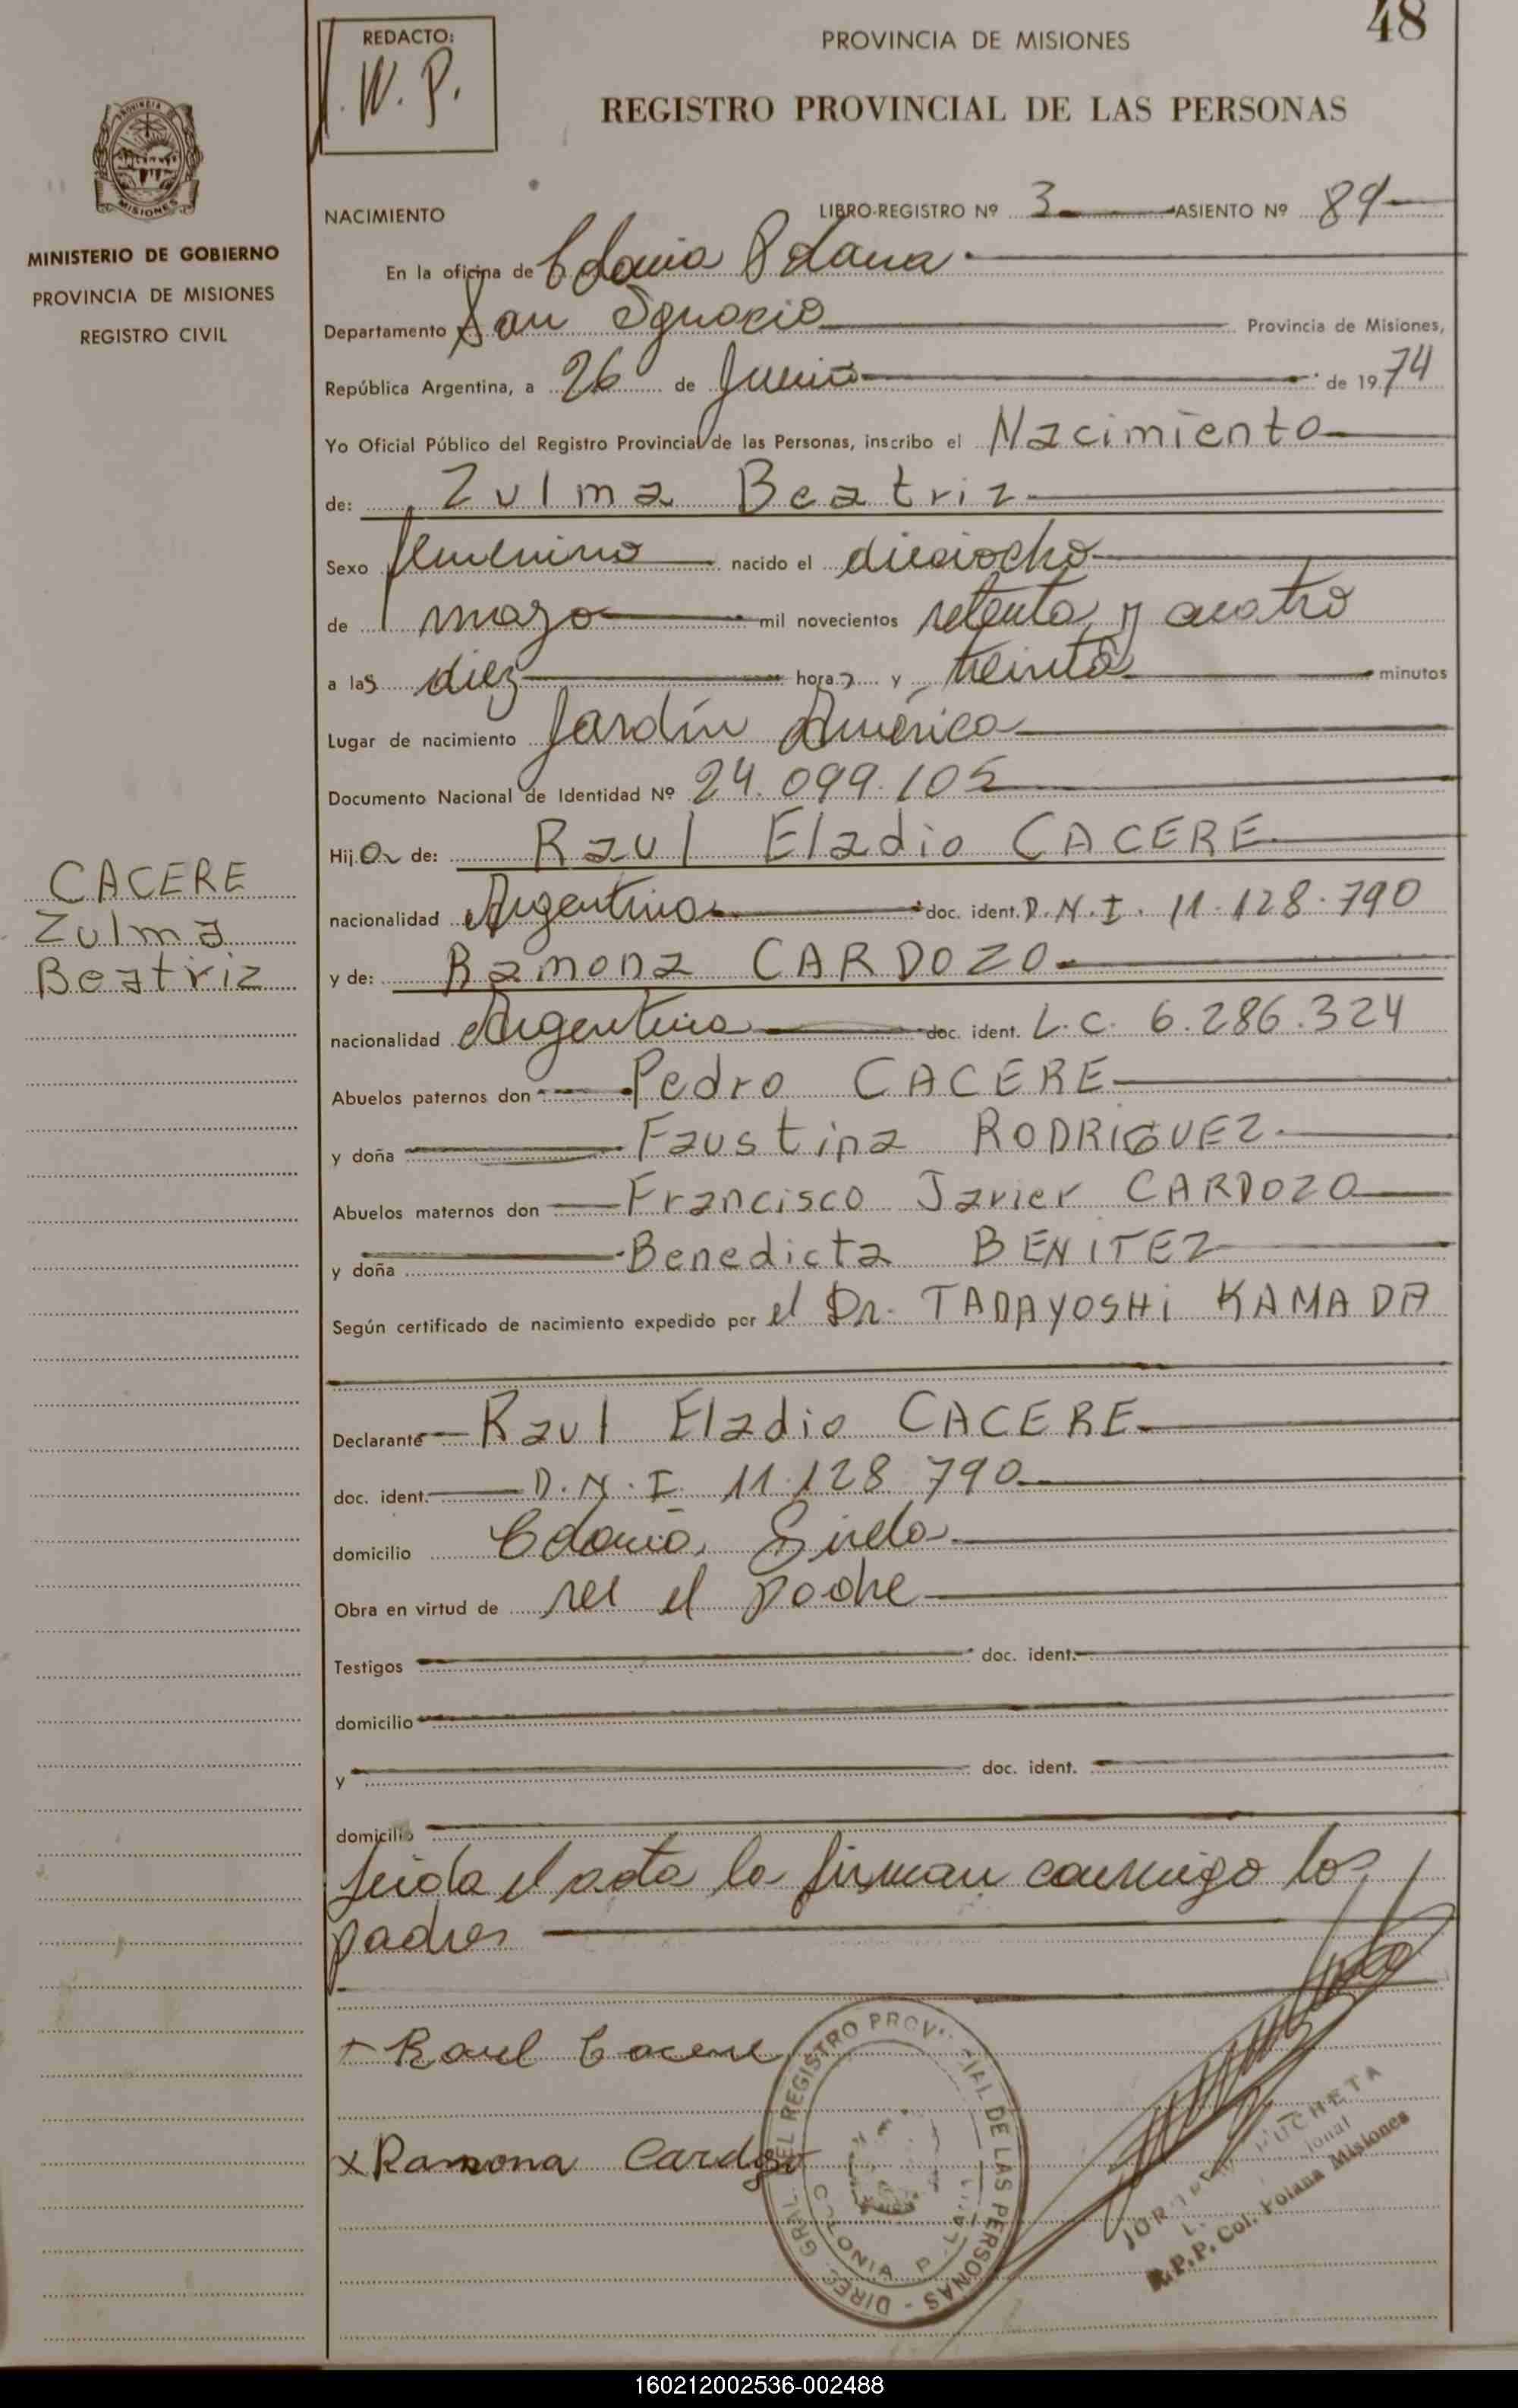 48
REDACTO:
W. P.
PROVINCIA DE MISIONES
REGISTRO PROVINCIAL DE LAS PERSONAS
MISIONES
MINISTERIO DE GOBIERNO
PROVINCIA DE MISIONES
REGISTRO CIVIL
NACIMIENTO LIBRO-REGISTRO Nº 3 ASIENTO Nº 89
En la oficina de Colonia Polana
Departamento San Ignacio Provincia de Misiones,
República Argentina, a 26 de Junio de 1974
Yo Oficial Público del Registro Provincial de las Personas, inscribo el Nacimiento
de: Zulma Beatriz
Sexo femenino nacido el dieciocho
de mayo mil novecientos setenta y cuatro
a las diez horas y treinta minutos
Lugar de nacimiento Jardín América
Documento Nacional de Identidad Nº 24.099.105
Hija de: Raul Eladio CACERE
CACERE
Zulma
Beatriz
nacionalidad Argentino doc. ident. D.N.I. 11.128.790
y de: Ramona CARDOZO
nacionalidad Argentina doc. ident. L.C. 6.286.324
Abuelos paternos don Pedro CACERE
y doña Faustina RODRIGUEZ
Abuelos maternos don Francisco Javier CARDOZO
y doña Benedicta BENITEZ
Según certificado de nacimiento expedido por el Dr. TADAYOSHi KAMADA
Declarante Raul Eladio CACERE
doc. ident. D.N.I. 11.128.790
domicilio Colonia
Obra en virtud de ser el padre
Testigos doc. ident.
domicilio
y doc. ident.
domicilio
Leida el acta la firman conmigo los
padres
+ Raul Cacere
x Ramona Cardozo
DIREC. GRAL. DEL REGISTRO PROVINCIAL DE LAS PERSONAS
COLONIA POLANA
R.P.P. Col. Polana Misiones
160212002536-002488